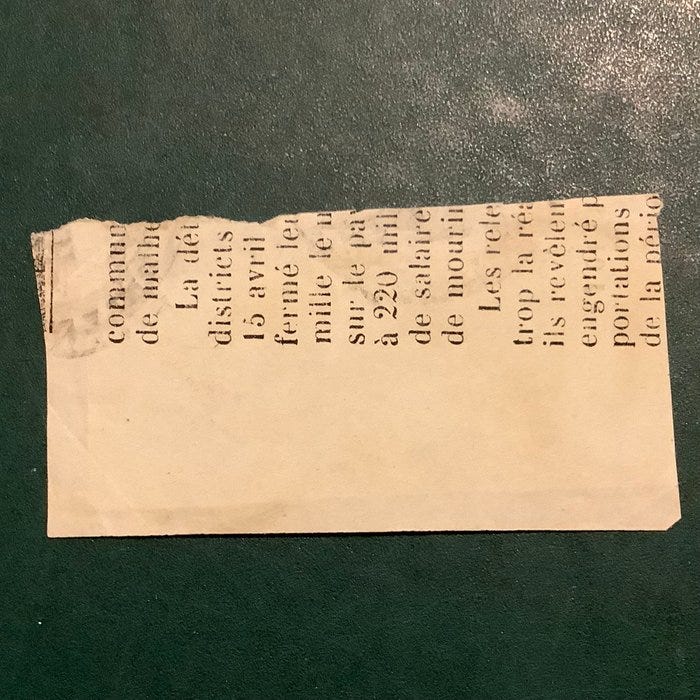 commune
de malhe
La dét
districts
15 avril
fermé leu
mille le n
sur le pav
à 220 mil
de salaire
de mourin
Les rele
trop la réa
ils revèlen
engendré p
portations
de la pério